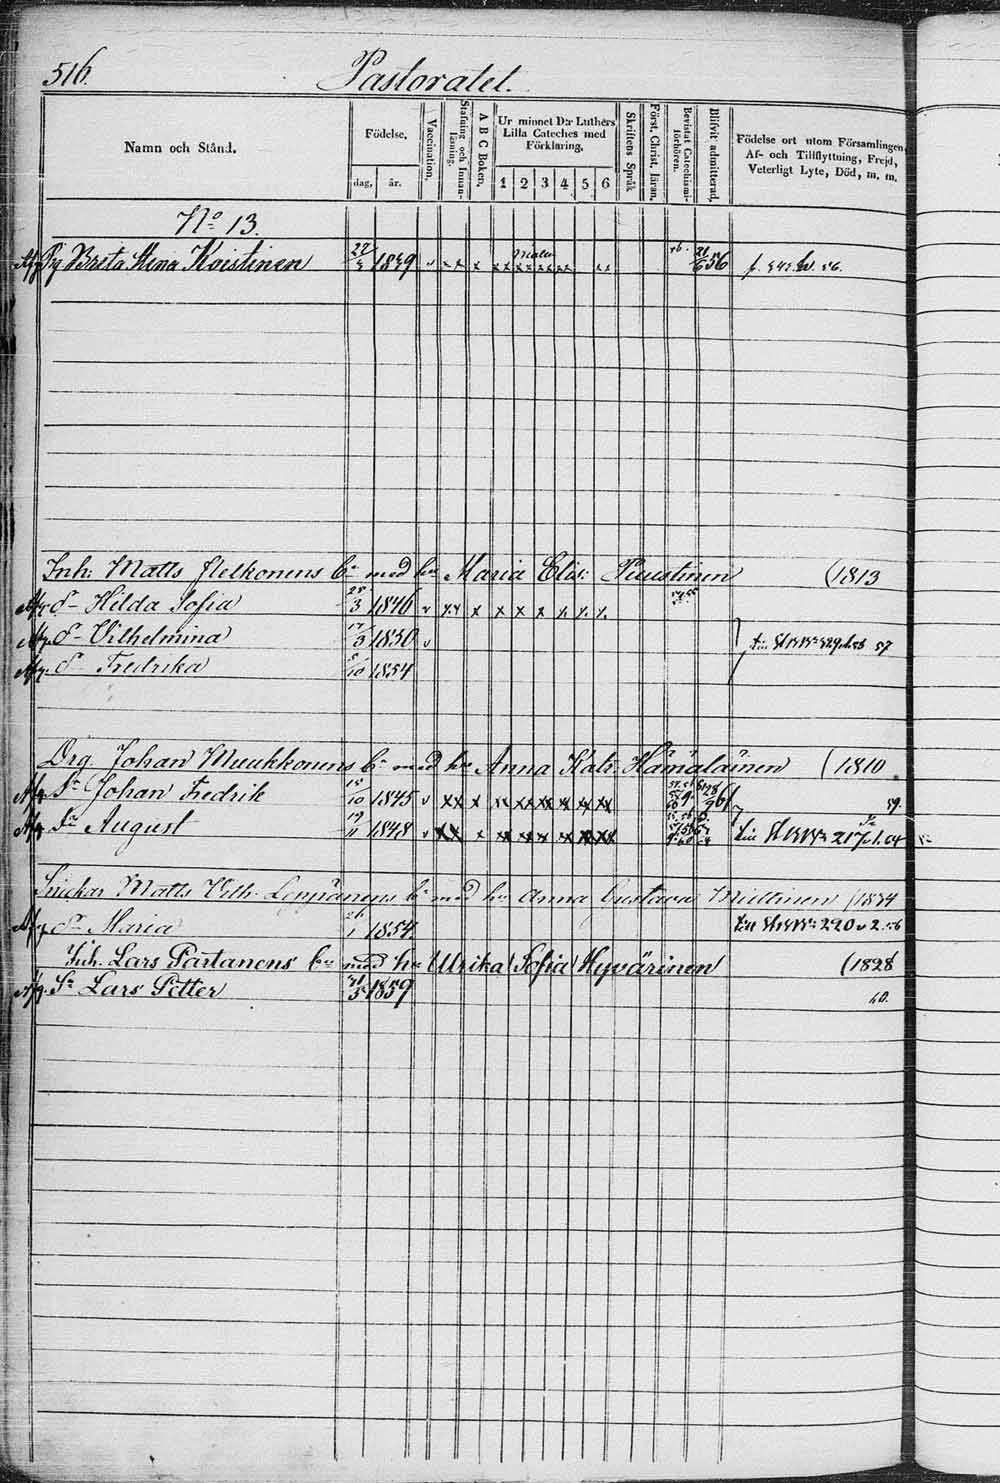 516.
Pastoratet.
Namn och Stånd.
Födelse,
dag, år.
Vaccination,
Stafning och Innan-läsning.
A B C Boken,
Ur minnet D:r Luthers Lilla Cateches med Förklaring,
1 2 3 4 5 6
Skriftens Språk
Först. Christ. läran,
Bevistat Catechismi-förhören.
Blifvit admitterad,
Födelse ort utom Församlingen, Af- och Tillflyttning, Frejd, Veterligt Lyte, Död, m. m.
No 13.
Afg. Pig Breta Stina Koistinen 22/3 1839 v x x x x x x x x x x 21/6 56 p. 242. 56.
Inh: Matts Flelkonens br med hu Maria Elis: Puustinen (1813
Afg. d- Hilda Sofia 28/3 1846 v x x x x x x x x x
Afg. d- Vilhelmina 17/3 1850 v 57
Afg. d- Fredrika 5/10 1854
Drg. Johan Muukkonens br med hu Anna Kats Hämäläinen (1810
Afg. Sr Johan Fredrik 15/10 1845 v xx x x x x x x x 59.
Afg. Sr August 19/11 1848 v xx x x x x x x x 217
Snickar Matts Vilh. br med hu Anna Gustava Miettinen (1834
Afg. d- Maria 26/1 1854 220 56
Inh. Lars Partanens br med hu Ulrika Sofia Hyvärinen (1828
Afg. Sr Lars Petter 21/5 1859 60.